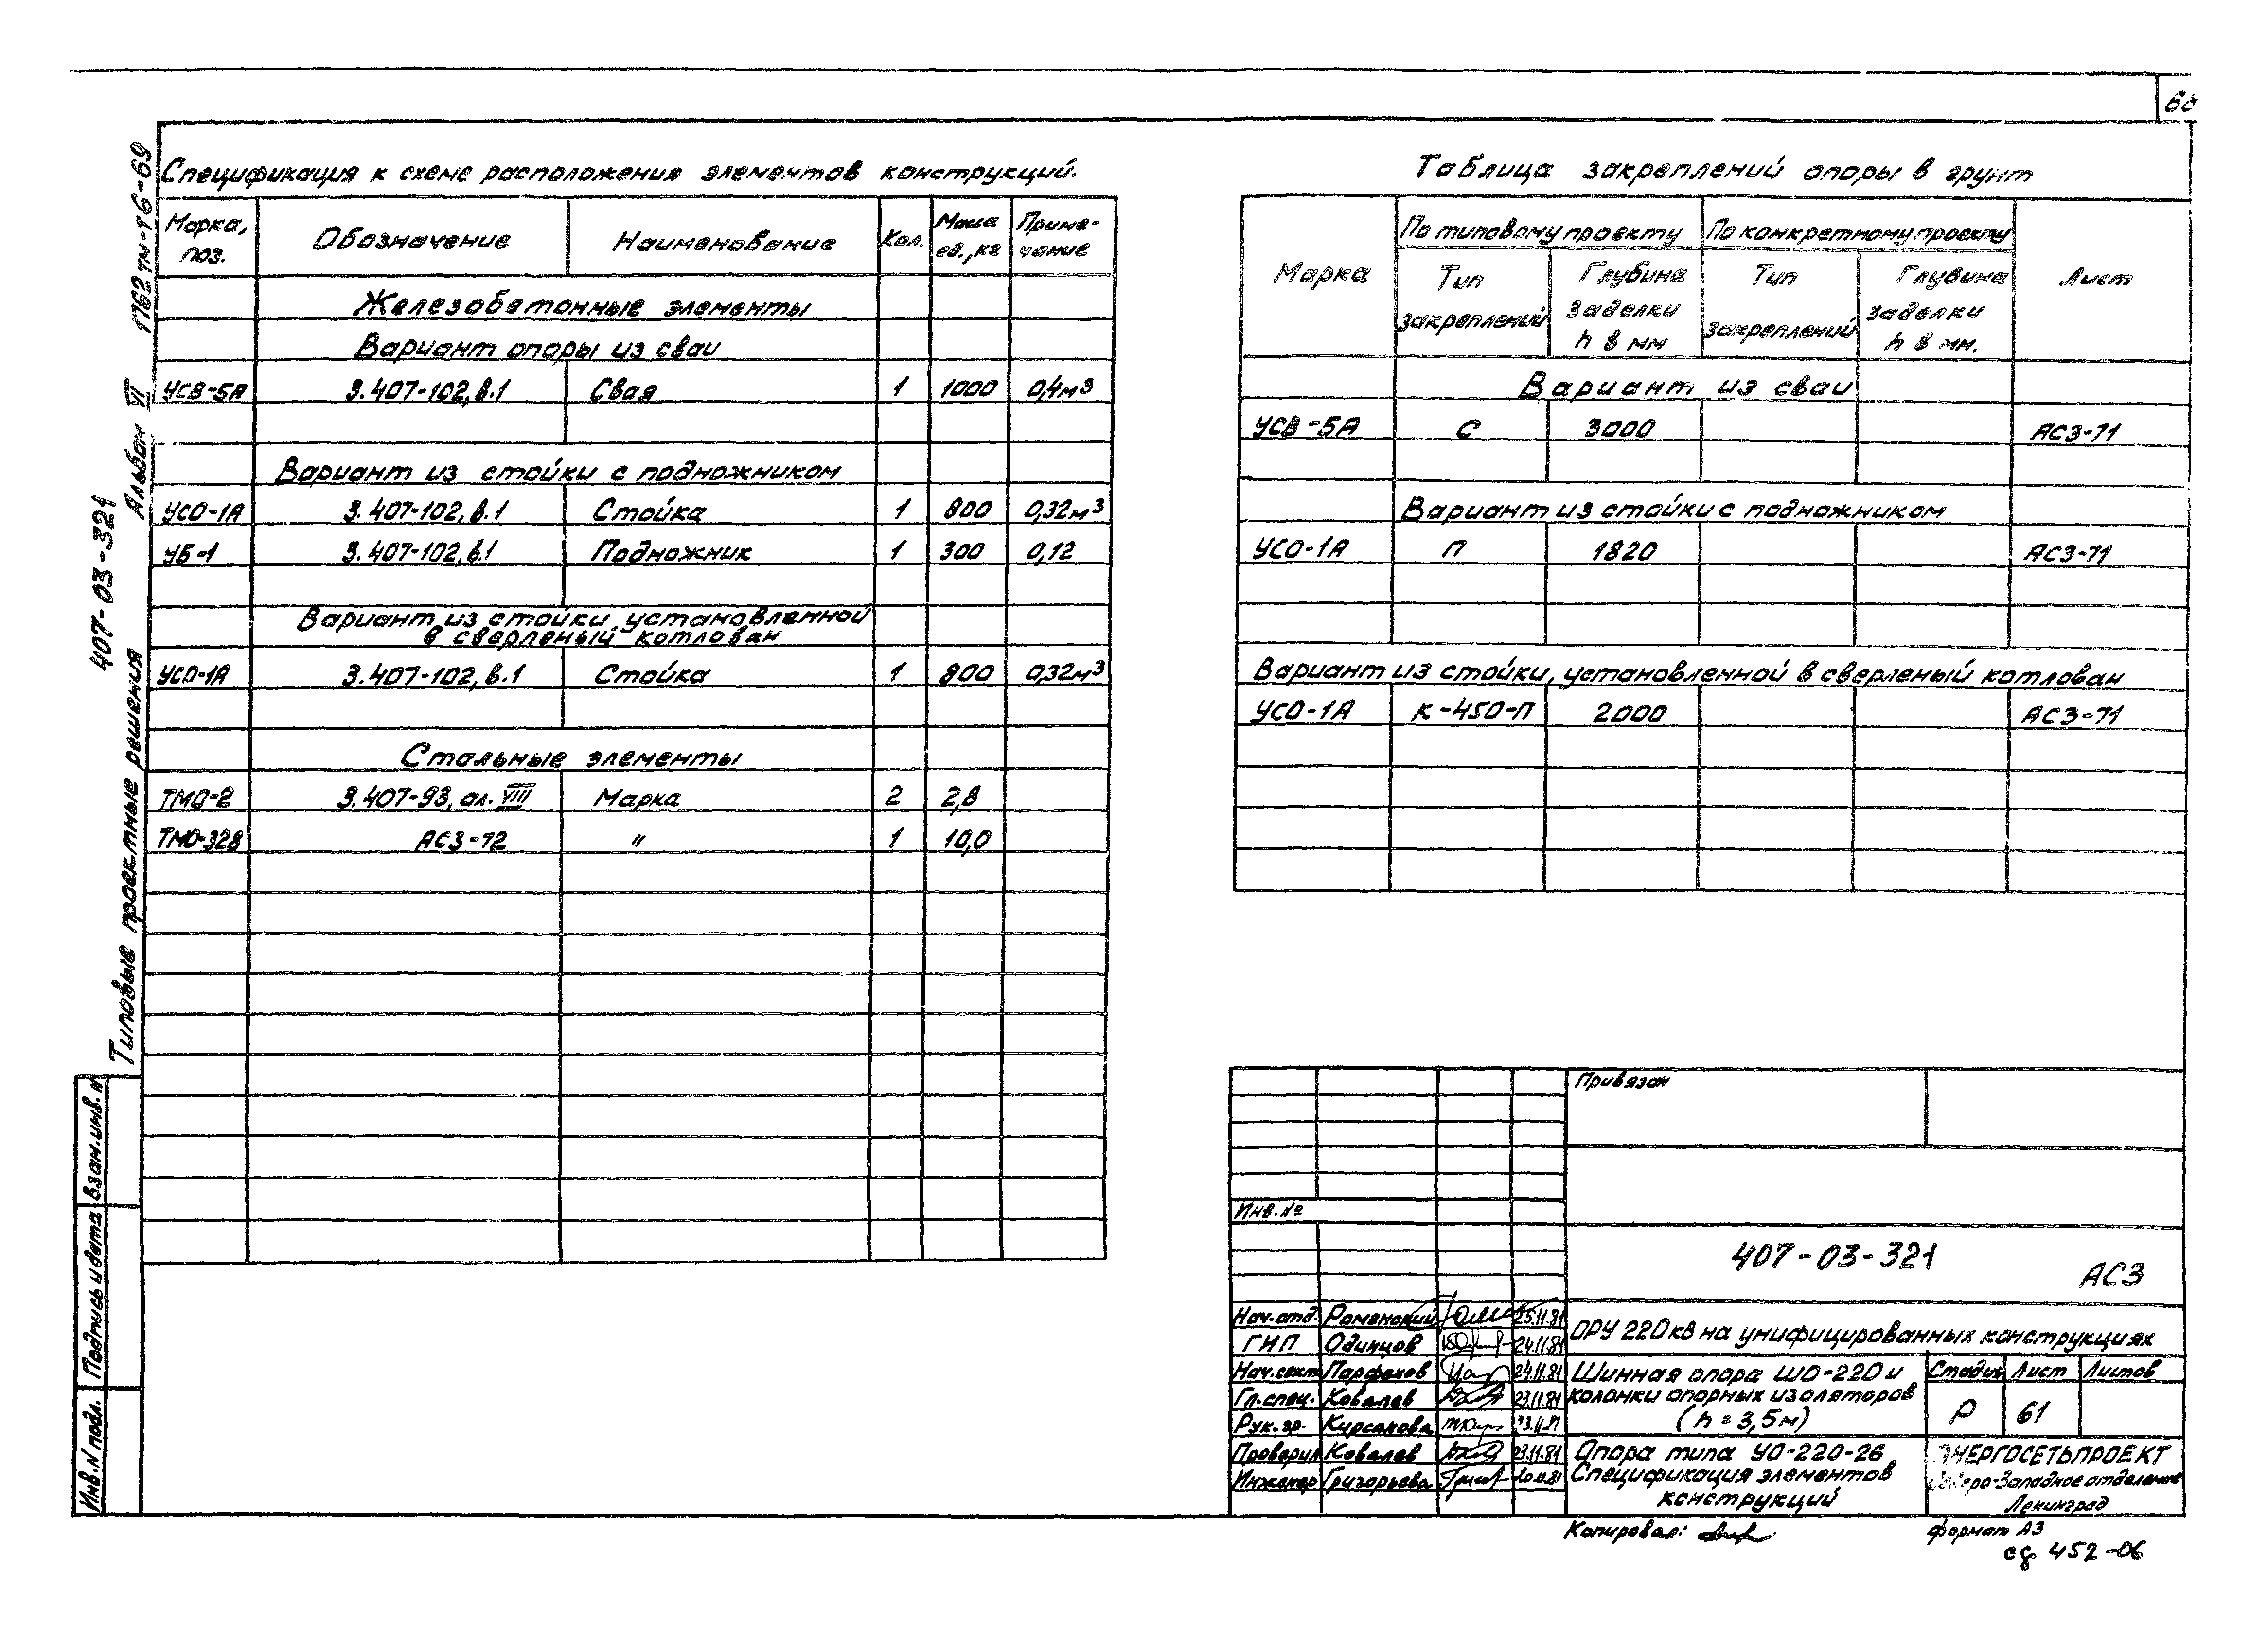 Спецификация к схеме расположения элементов конструкций.
Марка, поз. Обозначение Наименование Кол. Масса ед., кг Приме-чание
Железобетонные элементы
Вариант опоры из сваи
УСВ-5А 3.407-102, в.1 Свая 1 1000 0,4м³
Вариант из стойки с подножником
УСО-1А 3.407-102, в.1 Стойка 1 800 0,32м³
УБ-1 3.407-102, в.1 Подножник 1 300 0,12
Вариант из стойки установленной
в сверленый котлован
УСО-1А 3.407-102, в.1 Стойка 1 800 0,32м³
Стальные элементы
ТМО-2 3.407-93, ал. VIII Марка 2 2,8
ТМО-328 АС3-72 " 1 10,0
Таблица закреплений опоры в грунт
Марка По типовому проекту По конкретному проекту Лист
Тип закреплений Глубина заделки h в мм Тип закреплений Глубина заделки h в мм.
Вариант из сваи
УСВ-5А С 3000 АС3-71
Вариант из стойки с подножником
УСО-1А П 1820 АС3-71
Вариант из стойки, установленной в сверленый котлован
УСО-1А К-450-П 2000 АС3-71
Типовые проектные решения
407-03-321
Альбом VI
Взам. инв. №
Подпись и дата
Инв. № подл.
Привязан
Инв. №
407-03-321
АС3
Нач. отд. Роменский 25.11.81
ГИП Одинцов 24.11.81
Нач. сект. Парфенов 24.11.81
Гл. спец. Ковалев 23.11.81
Рук. гр. Кирсанова
Проверил Ковалев 23.11.81
Инженер Григорьева 20.11.81
ОРУ 220кв на унифицированных конструкциях
Шинная опора ШО-220 и
колонки опорных изоляторов
(h = 3,5м)
Стадия Лист Листов
Р 61
Опора типа УО-220-26
Спецификация элементов
конструкций
ЭНЕРГОСЕТЬПРОЕКТ
Северо-Западное отделение
Ленинград
Копировал:
формат А3
сф 452-06